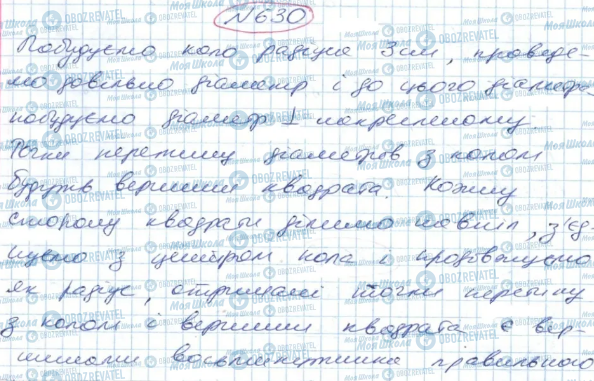 №630
Побудуємо коло радіуса 3см, проведе-
мо довільно діаметр і до цього діаметра
побудуємо діаметр ⊥ накресленому.
Точки перетину діаметрів з колом
будуть вершини квадрата. Кожну
сторону квадрата ділимо навпіл, з'єд-
нуємо з центром кола і продовжуємо
як радіус, отримані точки перетину
з колом і вершини квадрата є вер-
шинами восьмикутника правильного